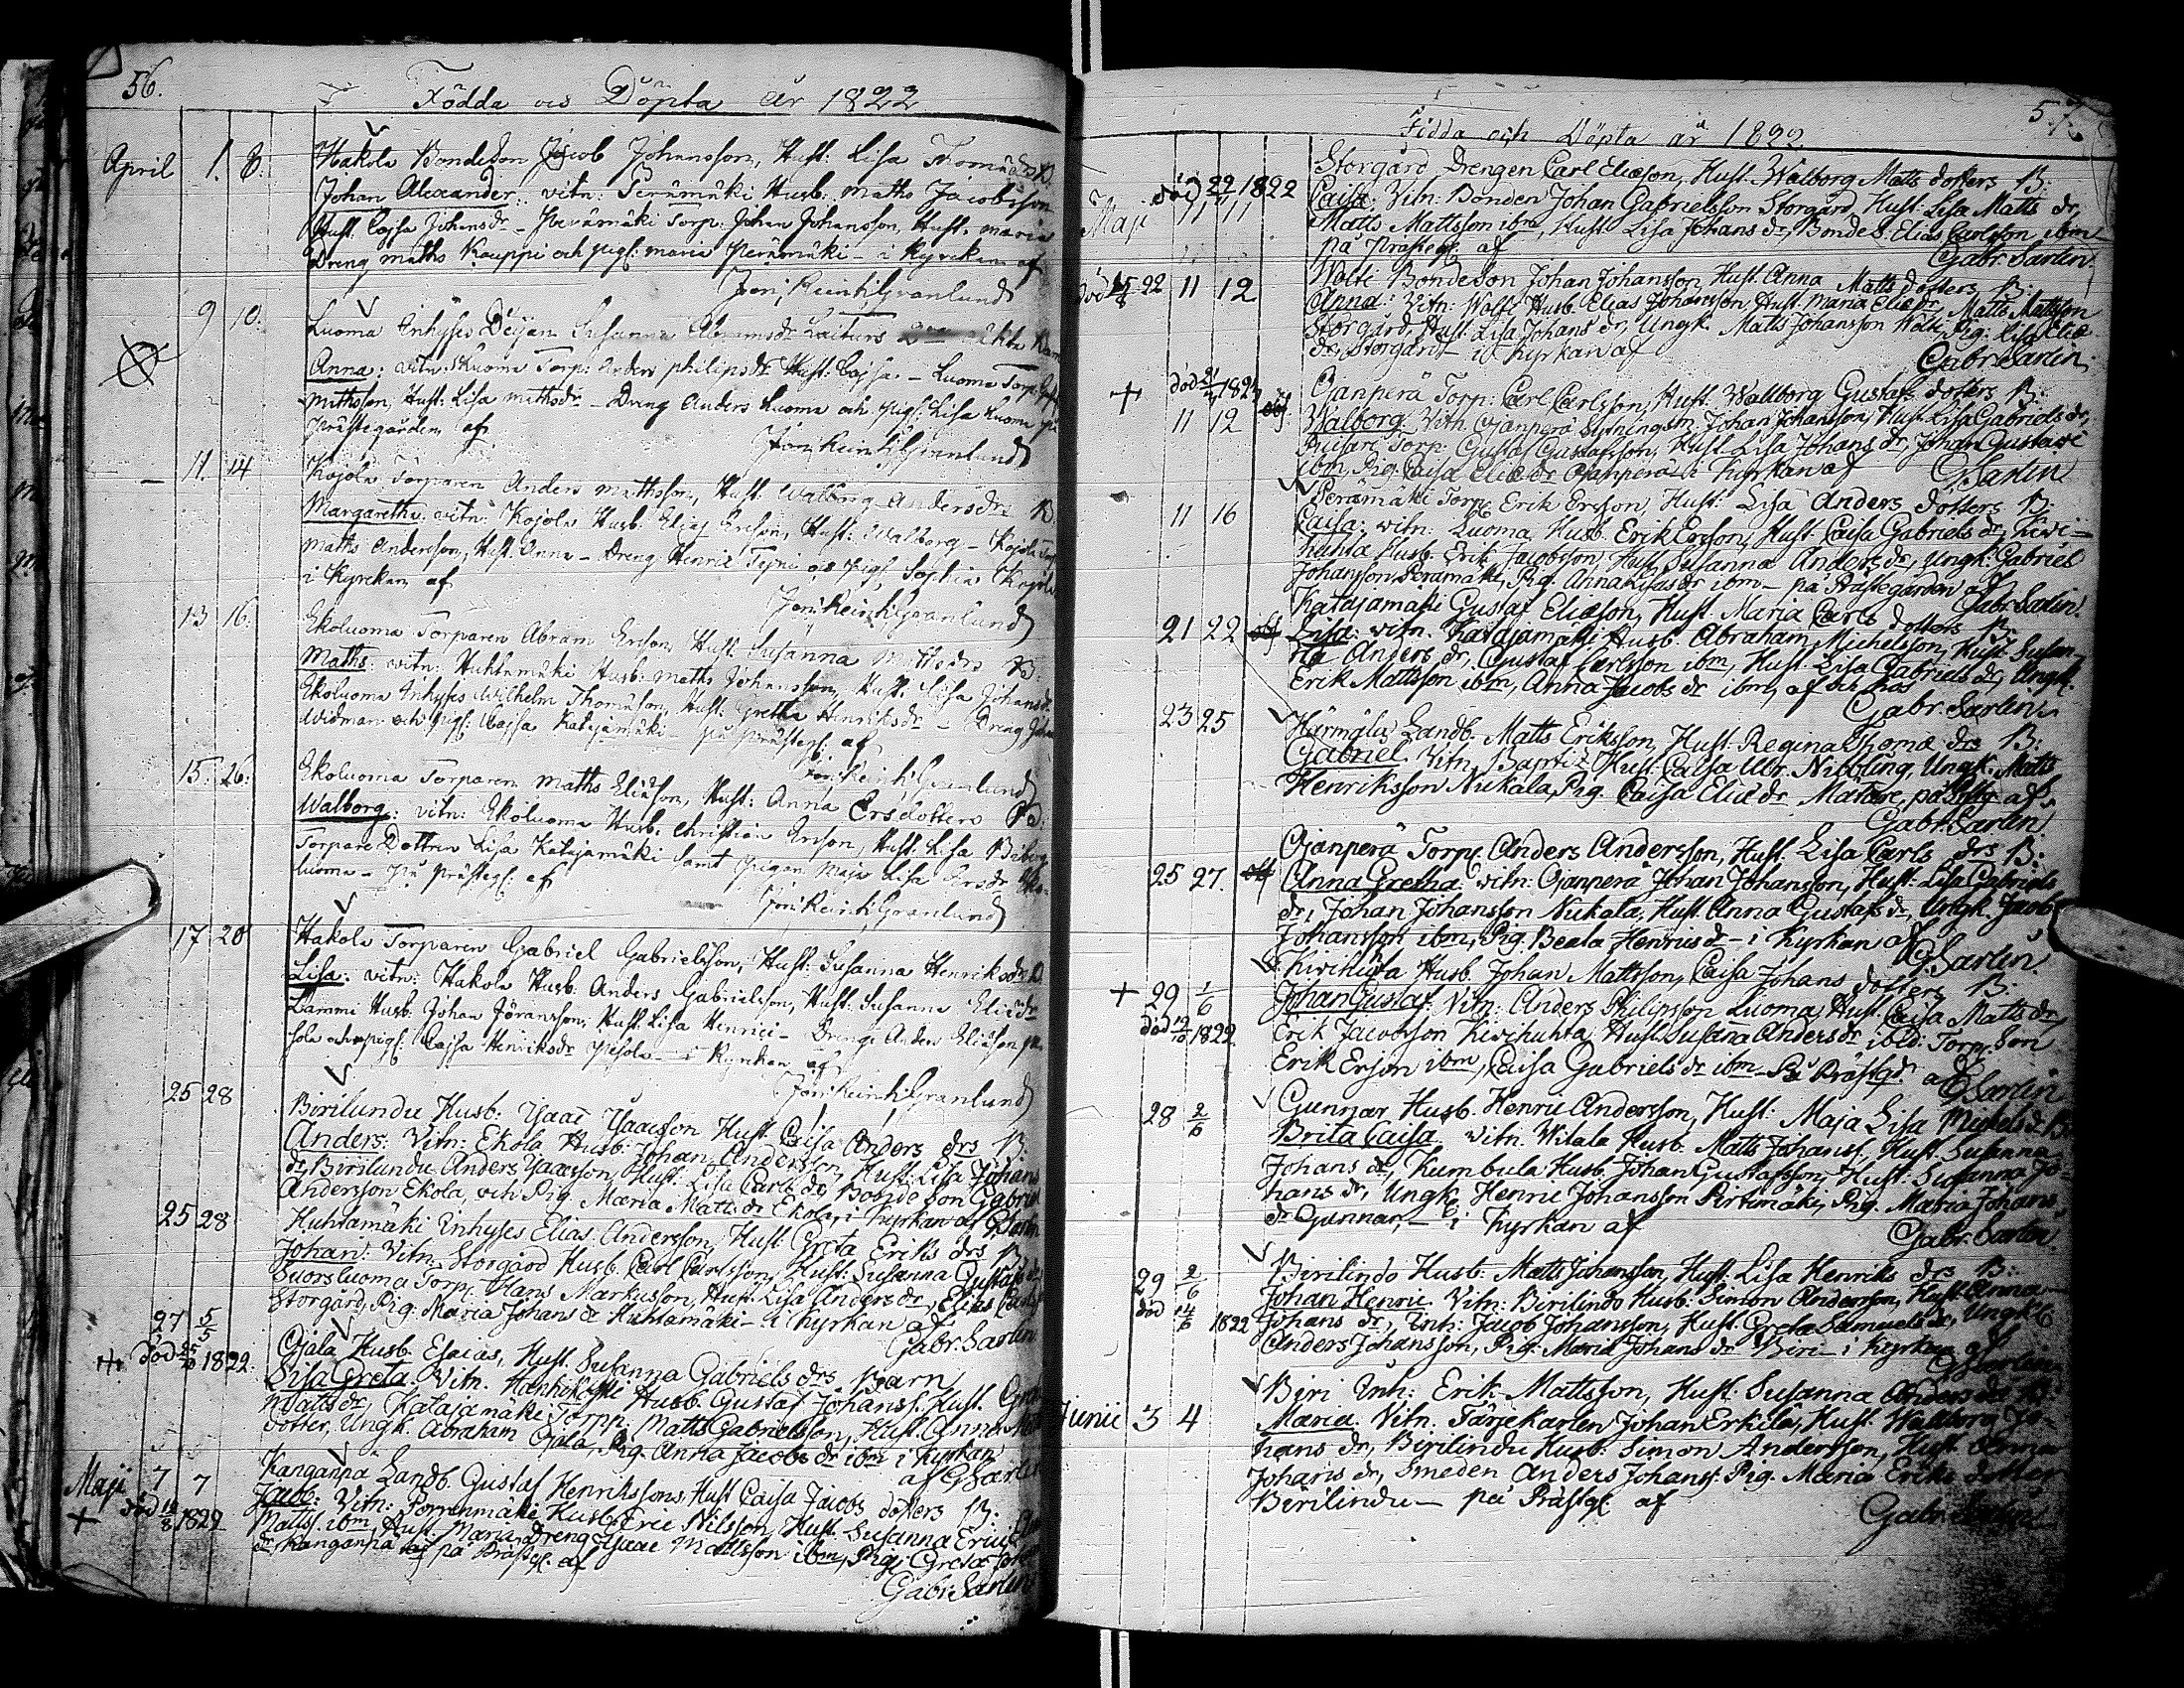 56.
Födda och Döpta år 1822
April 1. 8. Hakola Bondeson Jacob Johansson, Hust: Lisa Thomædrs B.
Johan Alexander: vitn: Perämäki Husb: Maths Jacobsson
Hust: Cajsa Johansdr - Perämäki Torp: Johan Johansson, Hust: Maria
Dreng Maths Kauppi och pig: Maria Perämäki - i Kyrckan af
Jon: Reinh: Granlund
9 10. Luoma Inhyses Deijan Susanna Abramsdr
Anna: vitn: Luoma Torp: Anders Philipsdr Hust: Cajsa - Luoma Torp:
Mathsson, Hust: Lisa Mathsdr - Dreng Anders Luoma och pig: Lisa Luoma på
Prästegården af
Jon: Reinh: Granlund
11. 14 Kojola Torparen Anders Mathsson, Hust: Walborg Andersdrs B.
Margaretha: vitn: Kojola Husb: Elias Ersson, Hust: Walborg - Kojola Torp:
Maths Andersson, Hust: Anna - Dreng Henric och pig: Sophia Kojola
i Kyrckan af
Jon: Reinh: Granlund
13 16. Ekoluoma Torparen Abram Ersson, Hust: Susanna Mathsdrs B:
Maths: vitn: Huhtamäki Husb: Maths Johansson, Hust: Lisa Johansdr
Ekoluoma Inhyses Wilhelm Thomasson, Hust: Gretha Henriksdr - Dreng Johan
Widman och pig: Cajsa Katajamäki - på prästeg: af
Jon: Reinh: Granlund
15. 26. Ekoluoma Torparen Maths Eliæson, Hust: Anna Ersdotters B:
Walborg: vitn: Ekoluoma Husb: Christian Ersson, Hust: Lisa
Torpare Dottren Lisa Katajamäki samt pigan Maja Lisa Ersdr Eko-
luoma - på prästeg: af
Jon: Reinh: Granlund
17 20 Hakola Torparen Gabriel Gabrielsson, Hust: Susanna Henriksdrs B.
Lisa: vitn: Hakola Husb: Anders Gabrielsson, Hust: Susanna Eliædr
Lammi Husb: Johan Göransson, Hust: Lisa Henrici - Dreng Anders Eliæson
och pig: Cajsa Henriksdr - i Kyrckan af
Jon: Reinh: Granlund
25 28 Birilundu Husb: Ysaac Ysaacsson Hust: Caisa Anders drs B:
Anders: Vitn: Ekola Husb: Johan Andersson, Hust: Lisa Johans
dr, Birilundu Anders Ysaacsson, Hust: Lisa Carls dr, Bonde Son Gabriel
Andersson Ekola, och Pig. Maria Matts dr Ekola, i Kyrkan af Sarlin
25 28 Huhtamäki Inhyses Elias Andersson, Hust. Greta Eriks drs B.
Johan: Vitn. Storgård Husb. Carl Carlsson, Hust: Susanna Gustafs dr
Suorsluoma Torp. Hans Markusson, Hust. Lisa Anders dr, Elias Carls
Storgård, Pig: Maria Johans dr Huhtamäki - i Kyrkan af
Gabr. Sarlin
27 5/5 Ojala Husb. Esaias, Hust. Susanna Gabriels drs Barn
död 1822. Lisa Greta. Vitn. Husb. Gustaf Johanss. Hust.
Matts dr, Katajamäki Torpp: Matts Gabrielsson, Hust. Anna
dotter, Ungk. Abraham Ojala, Pig. Anna Jacobs dr ibm i Kyrkan
af G Sarlin
Maji 7 7 Kanganpä Landb. Gustaf Henrikssons Hust Caisa Jacobs dotters B:
död 1822 Jacob: Vitn: Husb. Eric Nilsson, Hust. Susanna Erici
Matts. ibm, Hust. Maria, Dreng Ysaac Mattsson ibm, Pig: Greta
dr, Kanganpä på Prästg: af
Gabr: Sarlin
57.
Födda och Döpta år 1822
Storgård Drengen Carl Eliæson, Hust. Walborg Matts dotters B:
död 22 1822 Caisa: Vitn: Bonden Johan Gabrielsson Storgård, Hust: Lisa Matts dr,
Maji 11 11 Matts Mattsson ibm, Hust. Lisa Johans dr, Bonde S. Elias Carlsson ibm -
på Prästeg: af
Gabr. Sarlin.
död 22 11 12 Wolti Bondeson Johan Johansson, Hust. Anna Matts dotters B:
Anna: Vitn: Wolti Husb. Elias Johansson, Hust. Maria Eliædr, Matts Mattsson
Storgård, Hust: Lisa Johans dr, Ungk. Matts Johansson Wolti, Pig: Lisa Eliæ
dr, Storgård - i Kyrkan af
Gabr. Sarlin.
Ojanperä Torp: Carl Carlsson, Hust. Walborg Gustafs dotters B:
11 12 Walborg. Vitn. Ojanperä Johan Johansson, Hust. Lisa Gabriels dr,
Torp. Gustaf Gustafsson, Hust. Lisa Johans dr, Johan Gustavi
ibm, Pig. Caisa Eliæ dr Ojanperä - i Kyrkan af G. Sarlin
Perämäki Torp. Erik Ersson, Hust: Lisa Anders dotters B:
11 16 Caisa: vitn: Luoma Husb. Erik Ersson, Hust. Caisa Gabriels dr, Kivi-
huhta Husb. Erik Jacobsson, Hust. Susanna Anders dr, Ungk: Gabriel
Johansson Perämäki, Pig. Anna ibm - på Prästegården af
Gabr. Sarlin.
Katajamäki Gustaf Eliæson, Hust Maria Carls dotters B:
21 22 Lisa: vitn. Katajamäki Husb. Abraham Michelsson, Hust. Susan-
na Anders dr, Gustaf Carlsson ibm, Hust. Lisa Gabriels dr, Ungk.
Erik Mattsson ibm, Anna Jacobs dr ibm, af och hos
Gabr. Sarlin.
23 25 Härmälä Landb. Matts Eriksson, Hust. Regina Thomæ drs B:
Gabriel. Vitn. Hust. Caisa Ulr. Nibbling, Ungk. Matts
Henriksson Nukala, Pig. Caisa Eliæ dr Matare, på Prstg af
Gabr. Sarlin.
Ojanperä Torp. Anders Andersson, Hust. Lisa Carls drs B:
25 27. Anna Gretha: vitn: Ojanperä Johan Johansson, Hust: Lisa Gabriels
dr, Johan Johansson Nukala, Hust. Anna Gustafs dr, Ungk. Jacob
Johansson ibm, Pig. Beata Henrics dr - i Kyrkan af
G. Sarlin.
Kivihuhta Husb. Johan Mattsson, Caisa Johans dotters B:
29 1/6 Johan Gustaf. Vitn: Anders Philipsson Luoma, Hust. Caisa Matts dr,
död 1822 Erik Jacobsson Kivihuhta, Hust. Susanna Anders dr ibid: Torp. Son
Erik Ersson ibm, Caisa Gabriels dr ibm - På Prästgd af G Sarlin
28 2/6 Gunnar Husb. Henric Andersson, Hust: Maja Lisa Michels dr B.
Brita Caisa. vitn. Witala Husb. Matts Johanss, Hust. Susanna
Johans dr, Kumbula Husb. Johan Gustafsson, Hust. Susanna Jo-
hans dr, Ungk. Henric Johansson Pirttimäki, Pig. Maria Johans
dr Gunnar, - i Kyrkan af
Gabr. Sarlin.
29 2/6 Birilindo Husb: Matts Johansson, Hust. Lisa Henriks drs B:
död 1822 Johan Henric. Vitn: Birilindo Husb: Simon Andersson, Hust. Anna
Johans dr, Inh: Jacob Johansson, Hust. Greta Samuels dr, Ungk.
Anders Johansson, Pig: Maria Johans dr Biri - i Kyrkan af
G Sarlin
Biri Inh: Erik Mattsson, Hust. Susanna Anders drs B:
Junii 3 4 Maria. Vitn. Färjekarlen Johan Erkilä, Hust. Walborg Jo-
hans dr, Birilindu Husb: Simon Andersson, Hust. Anna
Johans dr, Smeden Anders Johanss. Pig. Maria Eriks dotter
Birilindu - på Prästg: af
Gabr. Sarlin